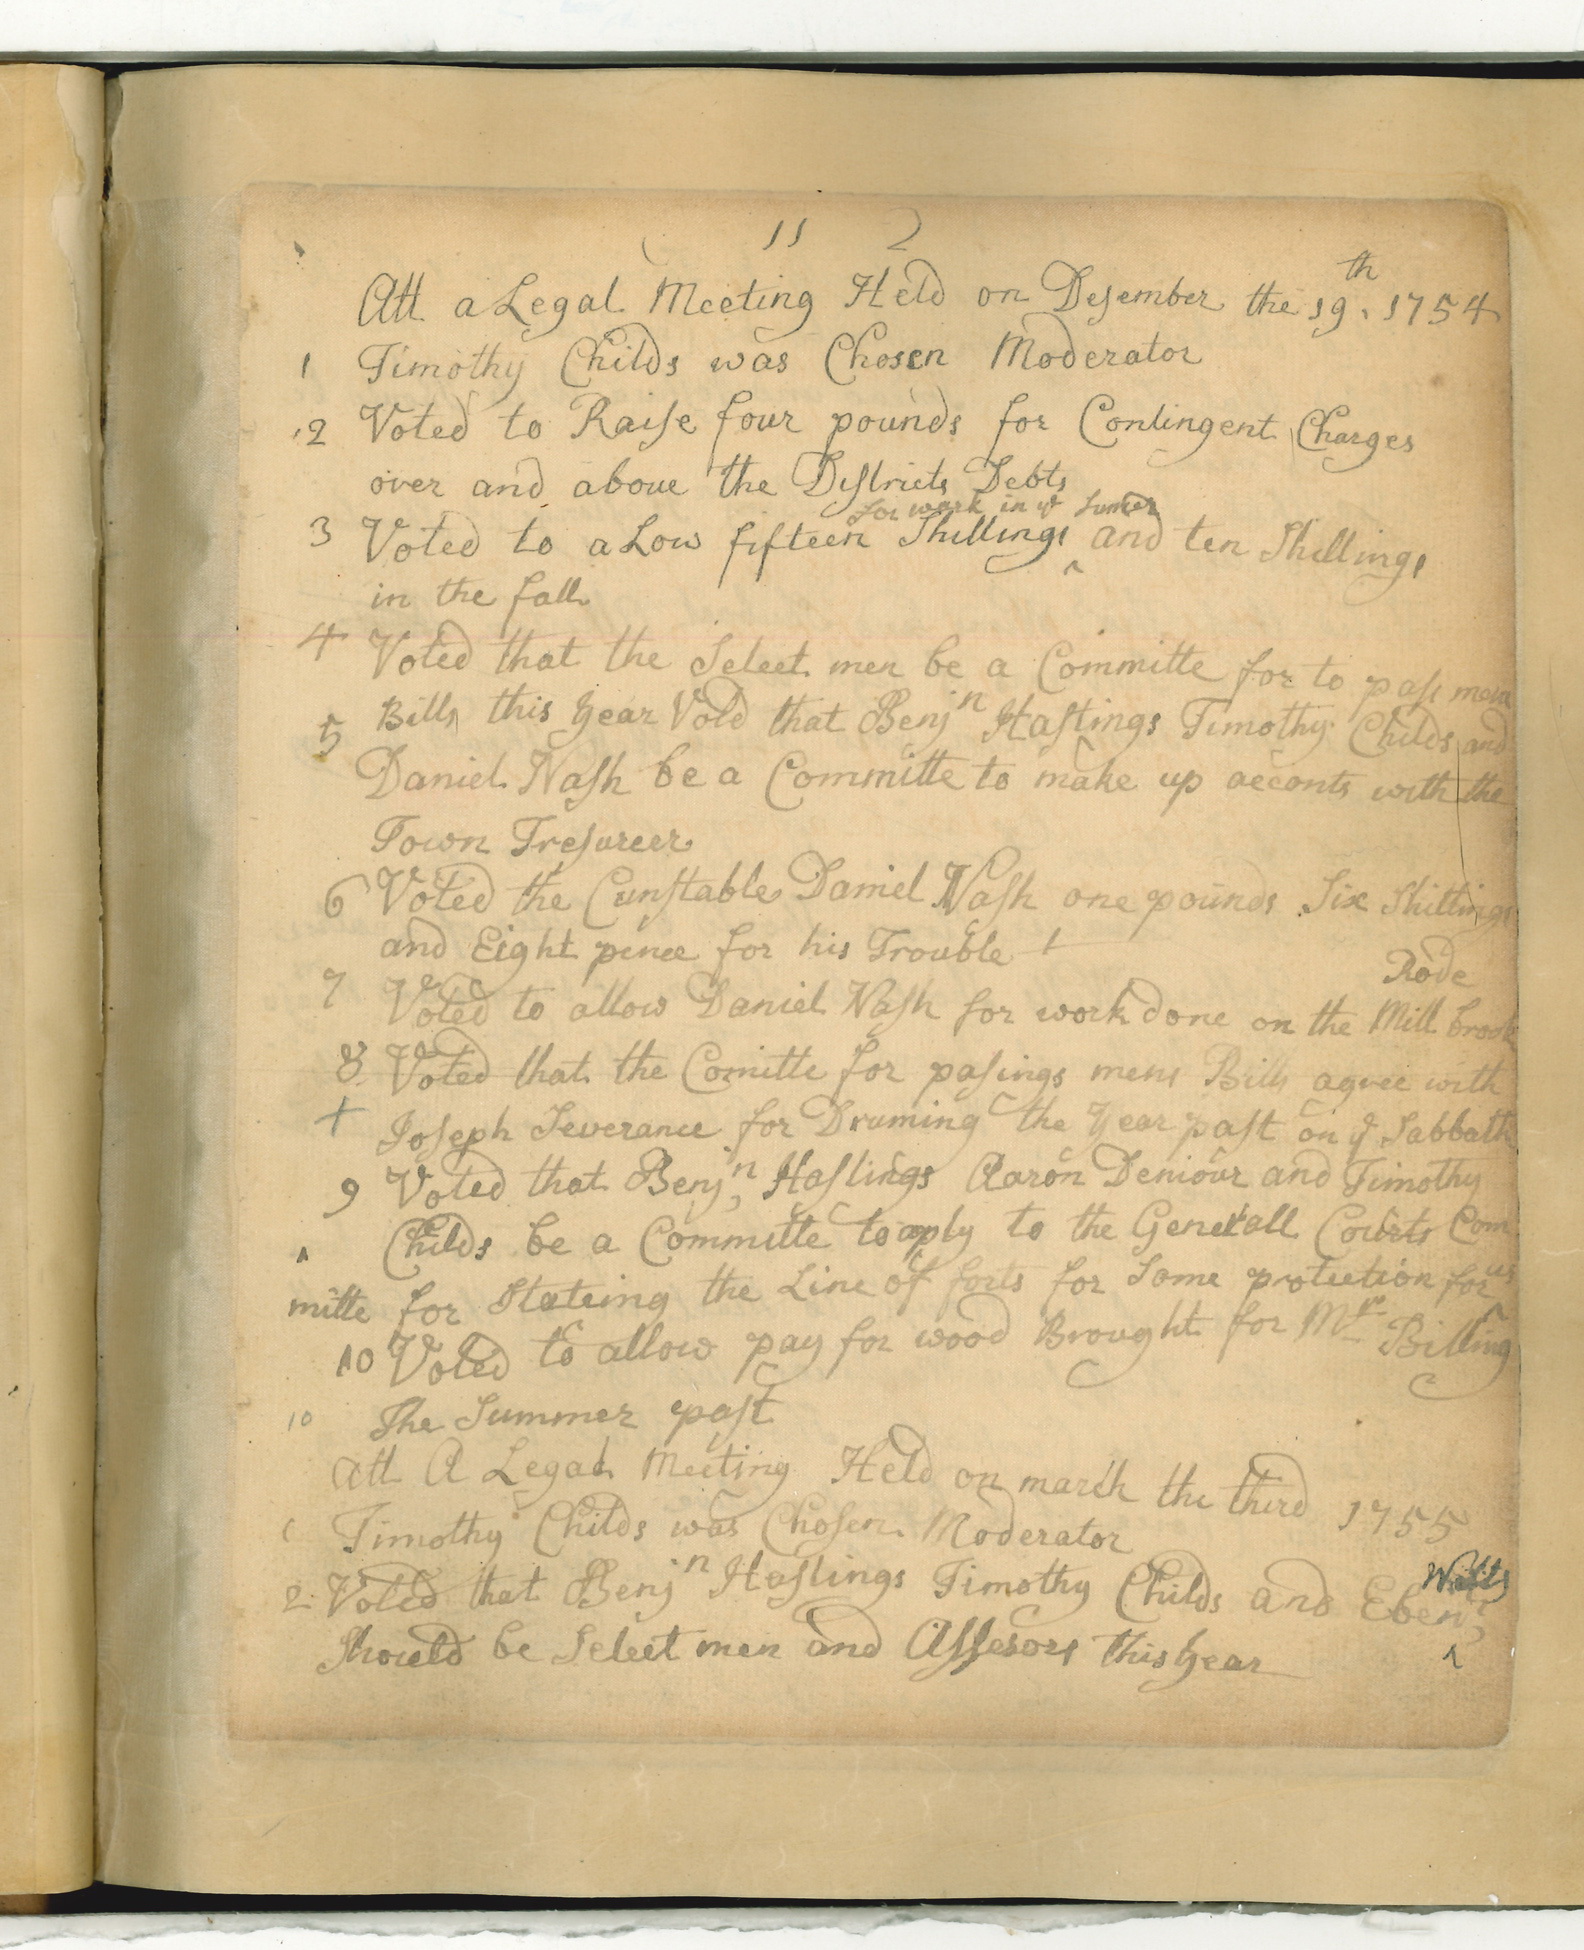 11 2
Att a Legal Meeting Held on Desember the 19th. 1754
1 Timothy Childs was Chosen Moderator
2 Voted to Raise four pounds for Contingent Charges
over and above the Districts Debts
for work in ye Sumer
3 Voted to a Low fifteen Shillings ^ and ten Shillings
in the fall
4 Voted that the Select men be a Committe for to pass mens
Bills this year
5 Voted that Benjn Hastings Timothy Childs and
Daniel Nash be a Committe to make up acconts with the
Town Tresureer
6 Voted the Cunstable Daniel Nash one pounds Six Shillings
and Eight pence for his Trouble
Rode
7 Voted to allow Daniel Nash for work done on the Mill brook
8 Voted that the Comitte for pasings mens Bills agree with
+ Joseph Severance for Druming the Year past on ye Sabbath
9 Voted that Benjn Hastings Aaron Deniour and Timothy
Childs be a Committe to aply to the Generall Courts Com
mitte for Stateing the Line of forts for Some protection for us
10 Voted to allow pay for wood Brought for Mr Billing
10 The Summer past
Att A Legal Meeting Held on march the third 1755
1 Timothy Childs was Chosen Moderator
Wells
2 Voted that Benjn Hastings Timothy Childs and Ebenr ^
Should be Select men and Assesors this year